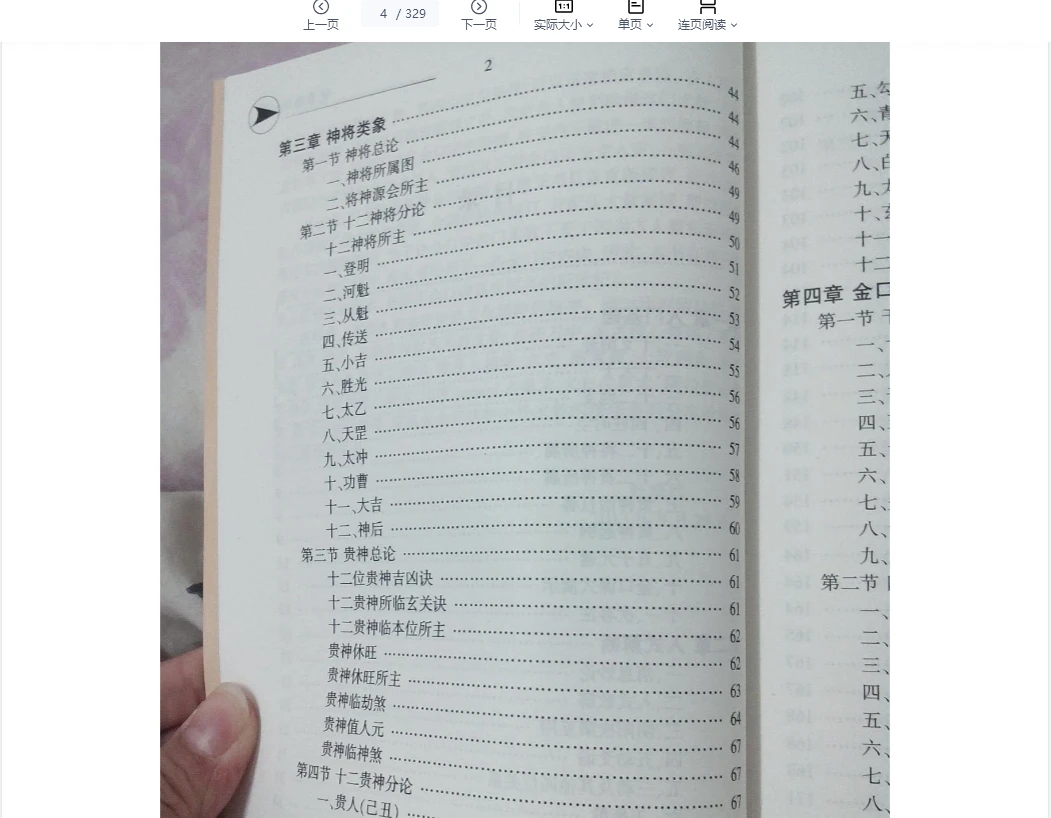 上一页
4 / 329
下一页
实际大小
单页
连页阅读
2
第三章 神将类象 …… 44
第一节 神将总论 …… 44
一、神将所属图 …… 44
二、将神源会所主 …… 46
第二节 十二神将分论 …… 49
十二神将所主 …… 49
一、登明 …… 50
二、河魁 …… 51
三、从魁 …… 52
四、传送 …… 53
五、小吉 …… 54
六、胜光 …… 55
七、太乙 …… 56
八、天罡 …… 56
九、太冲 …… 57
十、功曹 …… 58
十一、大吉 …… 59
十二、神后 …… 60
第三节 贵神总论 …… 61
十二位贵神吉凶诀 …… 61
十二贵神所临玄关诀 …… 61
十二贵神临本位所主 …… 62
贵神休旺 …… 62
贵神休旺所主 …… 63
贵神临劫煞 …… 64
贵神值人元 …… 67
贵神临神煞 …… 67
第四节 十二贵神分论 …… 67
一、贵人(己丑) ……
五、
六、青
七、天
八、白
九、
十、
十一
十二
第四章 金口
第一节
一、
二、
三、
四、
五、
六、
七、
八、
九、
第二节
一、
二、
三、
四、
五、
六、
七、
八、